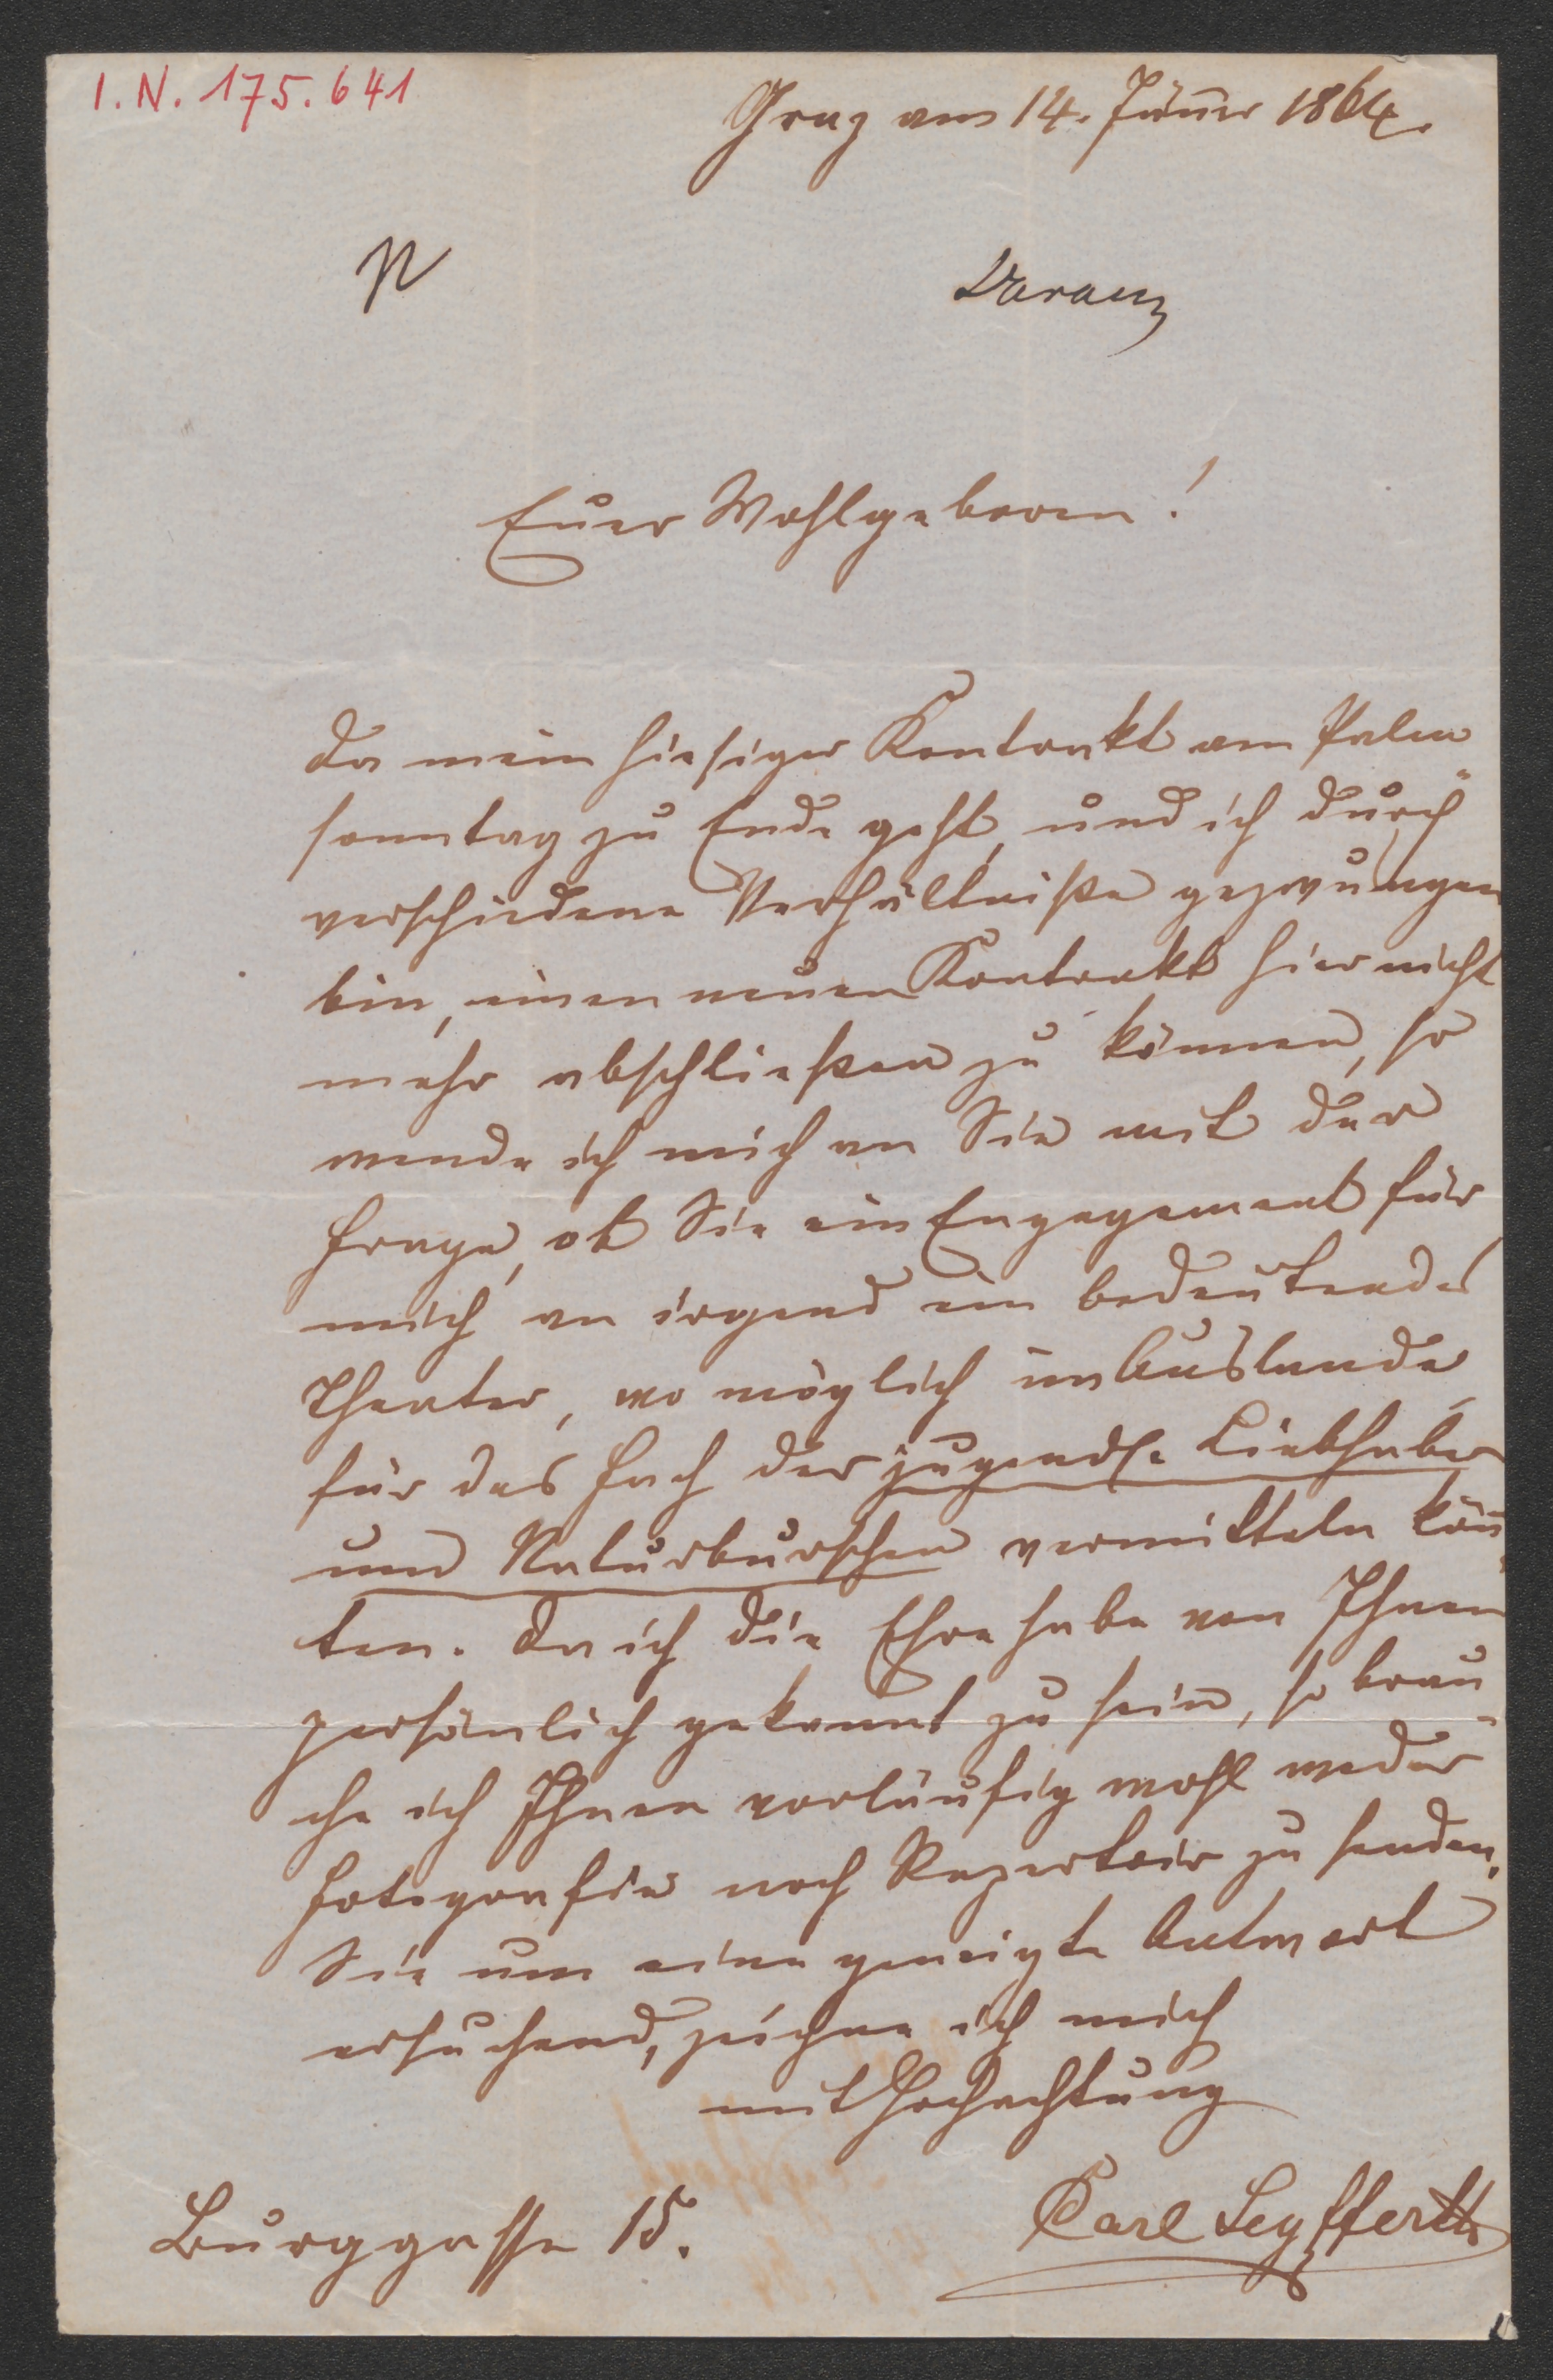 I. N. 175.641
Graz am 14. Jänner 1864.
N
Euer Wohlgeboren!
Da mein hiesiger Kontrakt am Palm
sonntag zu Ende geht, und ich durch
verschiedene Verhältniße gezwungen
bin, einen neuen Kontrakt hier nicht
mehr abschließen zu können, so
wende ich mich an Sie mit der
Frage, ob Sie ein Engagement für
mich an irgend ein bedeutendes
Theater, wo möglich im Auslande,
für das Fach der jugendl. Liebhaber
und Naturburschen vermitteln könn¬
ten. Da ich die Ehre habe von Ihnen
persönlich gekannt zu sein, so brau¬
che ich Ihnen vorläufig wohl weder
Fotografie noch Repertoir zu senden.
Sie um eine geneigte Antwort
ersuchend, zeichne ich mich
mit Hochachtung
Carl Seyfferth
Burggasse 15.